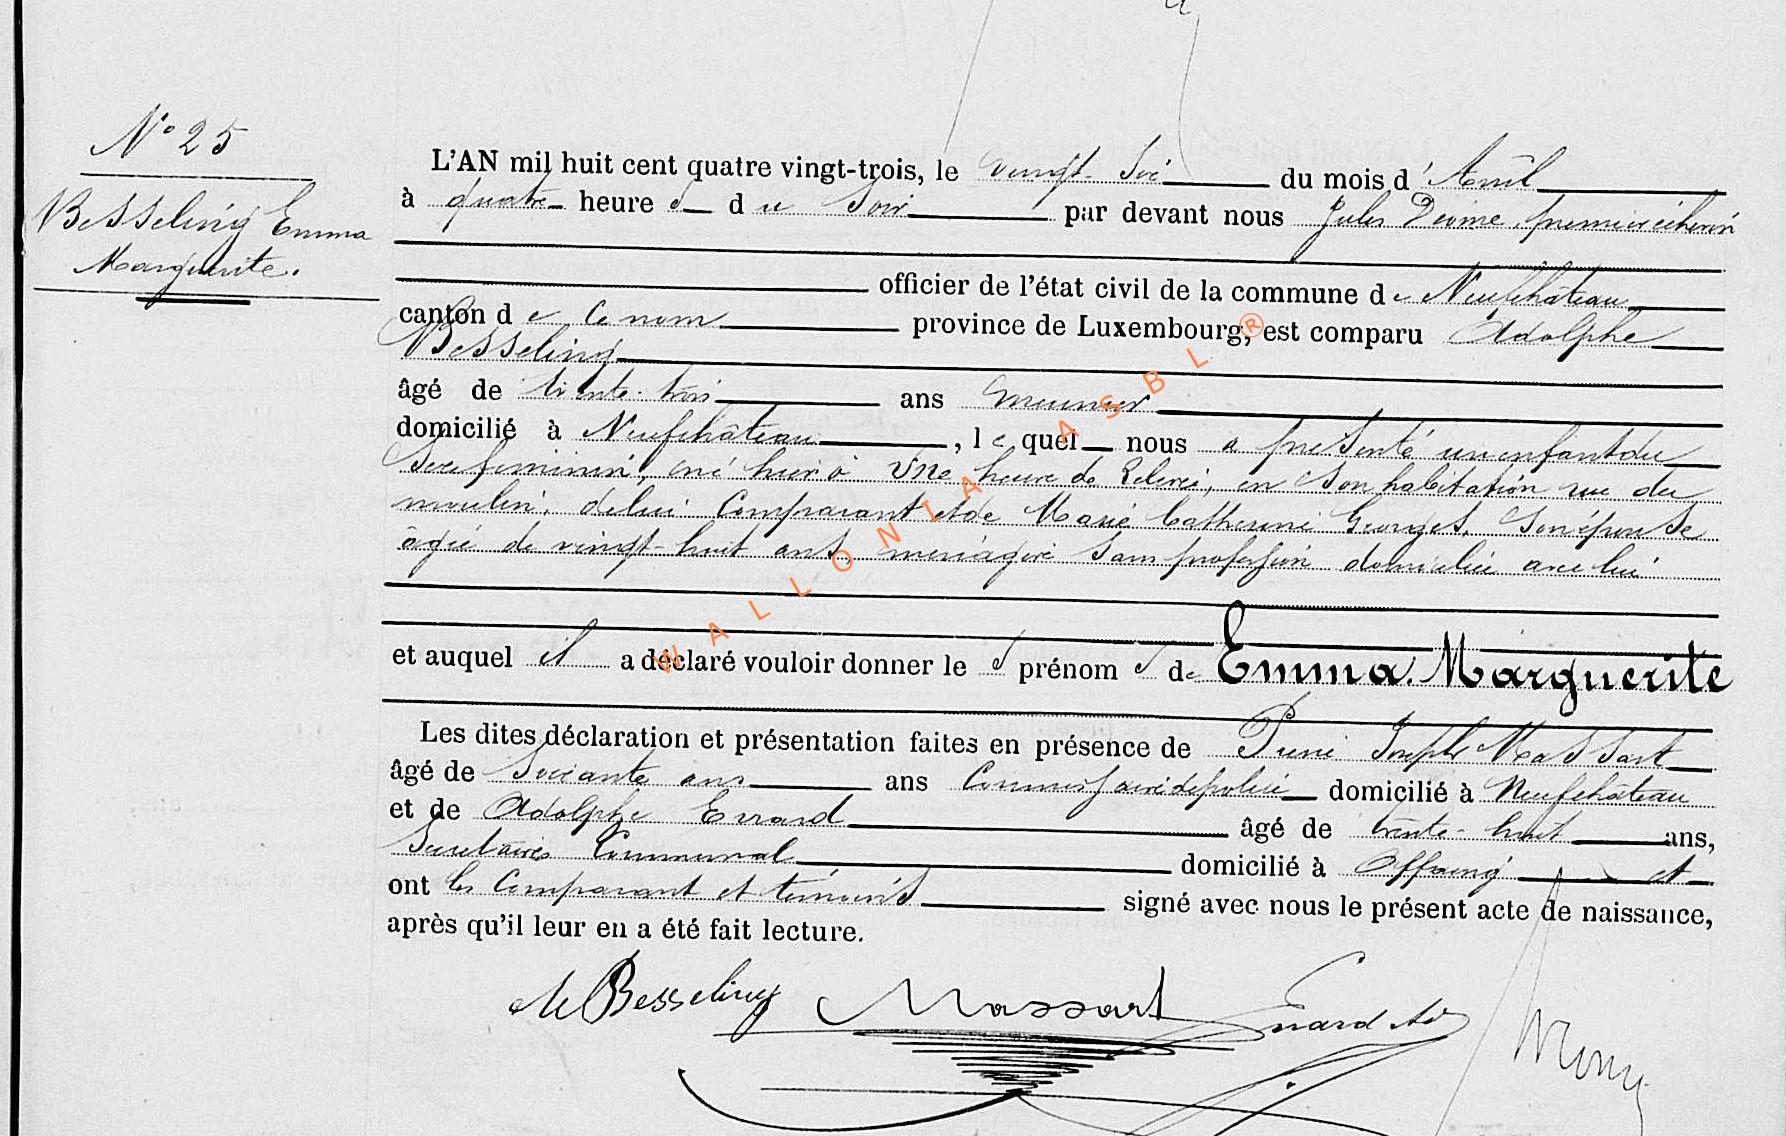 N° 25
Besseling Emma
Marguerite.
L'AN mil huit cent quatre vingt-trois, le vingt six du mois d'Avril
à quatre heure s du soir par devant nous Jules premier échevin
officier de l'état civil de la commune de Neufchâteau
canton de ce nom province de Luxembourg, est comparu Adolphe
Besseling
âgé de trente-trois ans meunier
domicilié à Neufchâteau, lequel nous a présenté un enfant du
sexe feminin, né hier à une heure de relevée, en son habitation rue du
moulin, de lui comparant et de Marie Catherine Georges, son épouse
âgée de vingt-huit ans, ménagère sans profession domiciliée avec lui
et auquel il a déclaré vouloir donner le s prénom s de Emma Marguerite
Les dites déclaration et présentation faites en présence de Pierre Joseph Massart
âgé de soixante ans ans Commissaire de police domicilié à Neufchâteau
et de Adolphe Evrard âgé de trente-huit ans,
Secrétaire Communal domicilié à Offaing et
ont les comparant et témoins signé avec nous le présent acte de naissance,
après qu'il leur en a été fait lecture.
Besseling Massart Evrard
WALLONIA ASBL ®